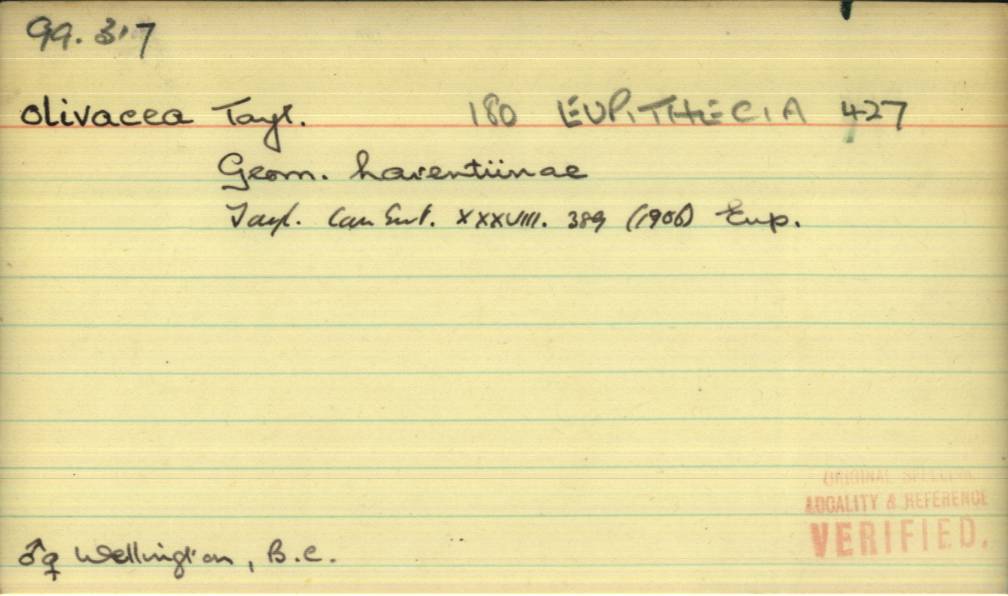 99. 317
olivacea Tayl. 180 EUPITHECIA 427
Geom. Larentiinae
Tayl. Can Ent. XXXVIII. 389 (1906) Eup.
ORIGINAL SPELLING
LOCALITY & REFERENCE
VERIFIED.
♂♀ Wellington, B.C.